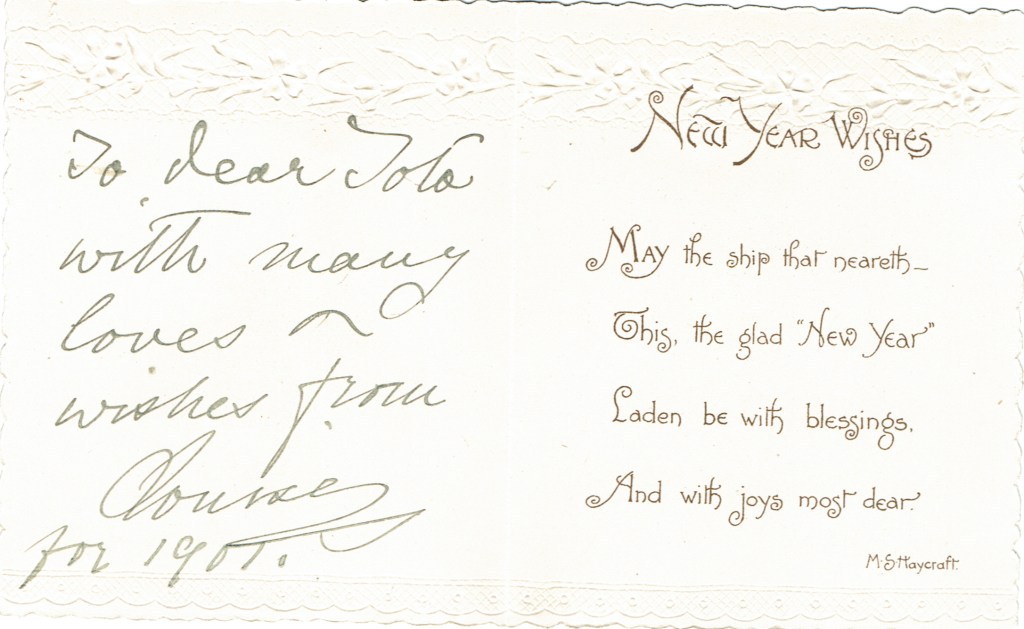 To dear Toto
with many
loves &
wishes from
Louise
for 1901.
NEW YEAR WISHES
MAY the ship that neareth—
This, the glad "New Year"
Laden be with blessings,
And with joys most dear.
M.S.Haycraft.